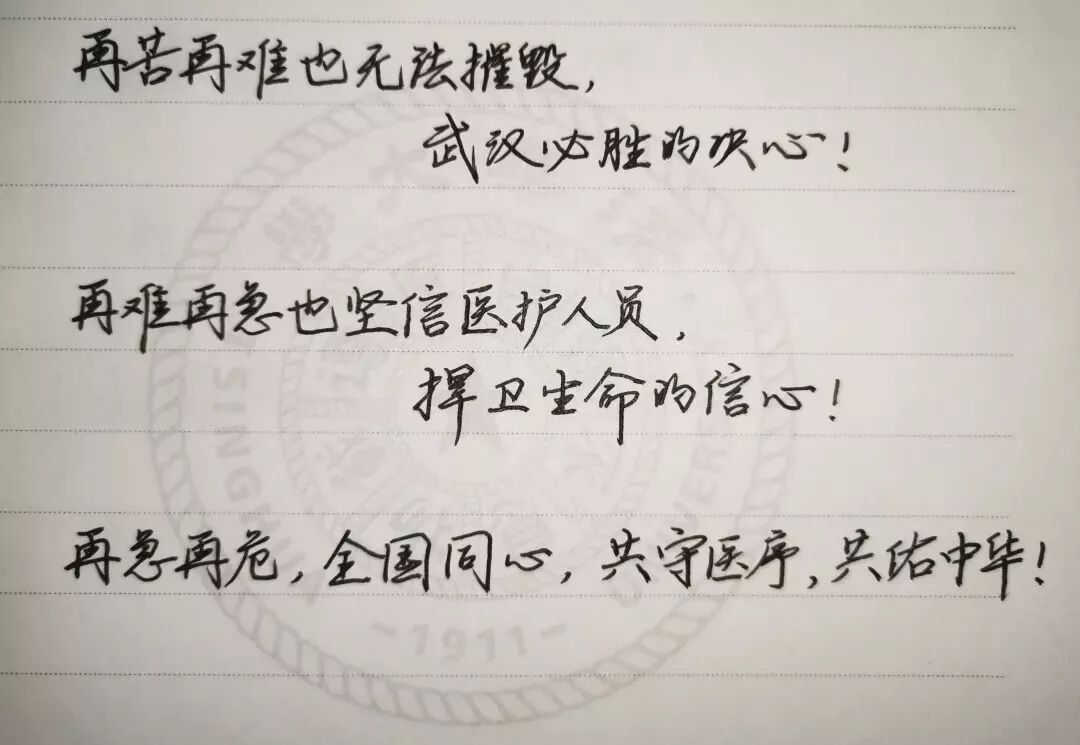 再苦再难也无法摧毁，
武汉必胜的决心！
再难再急也坚信医护人员，
捍卫生命的信心！
再急再危，全国同心，共守医序，共佑中华！
-1911-